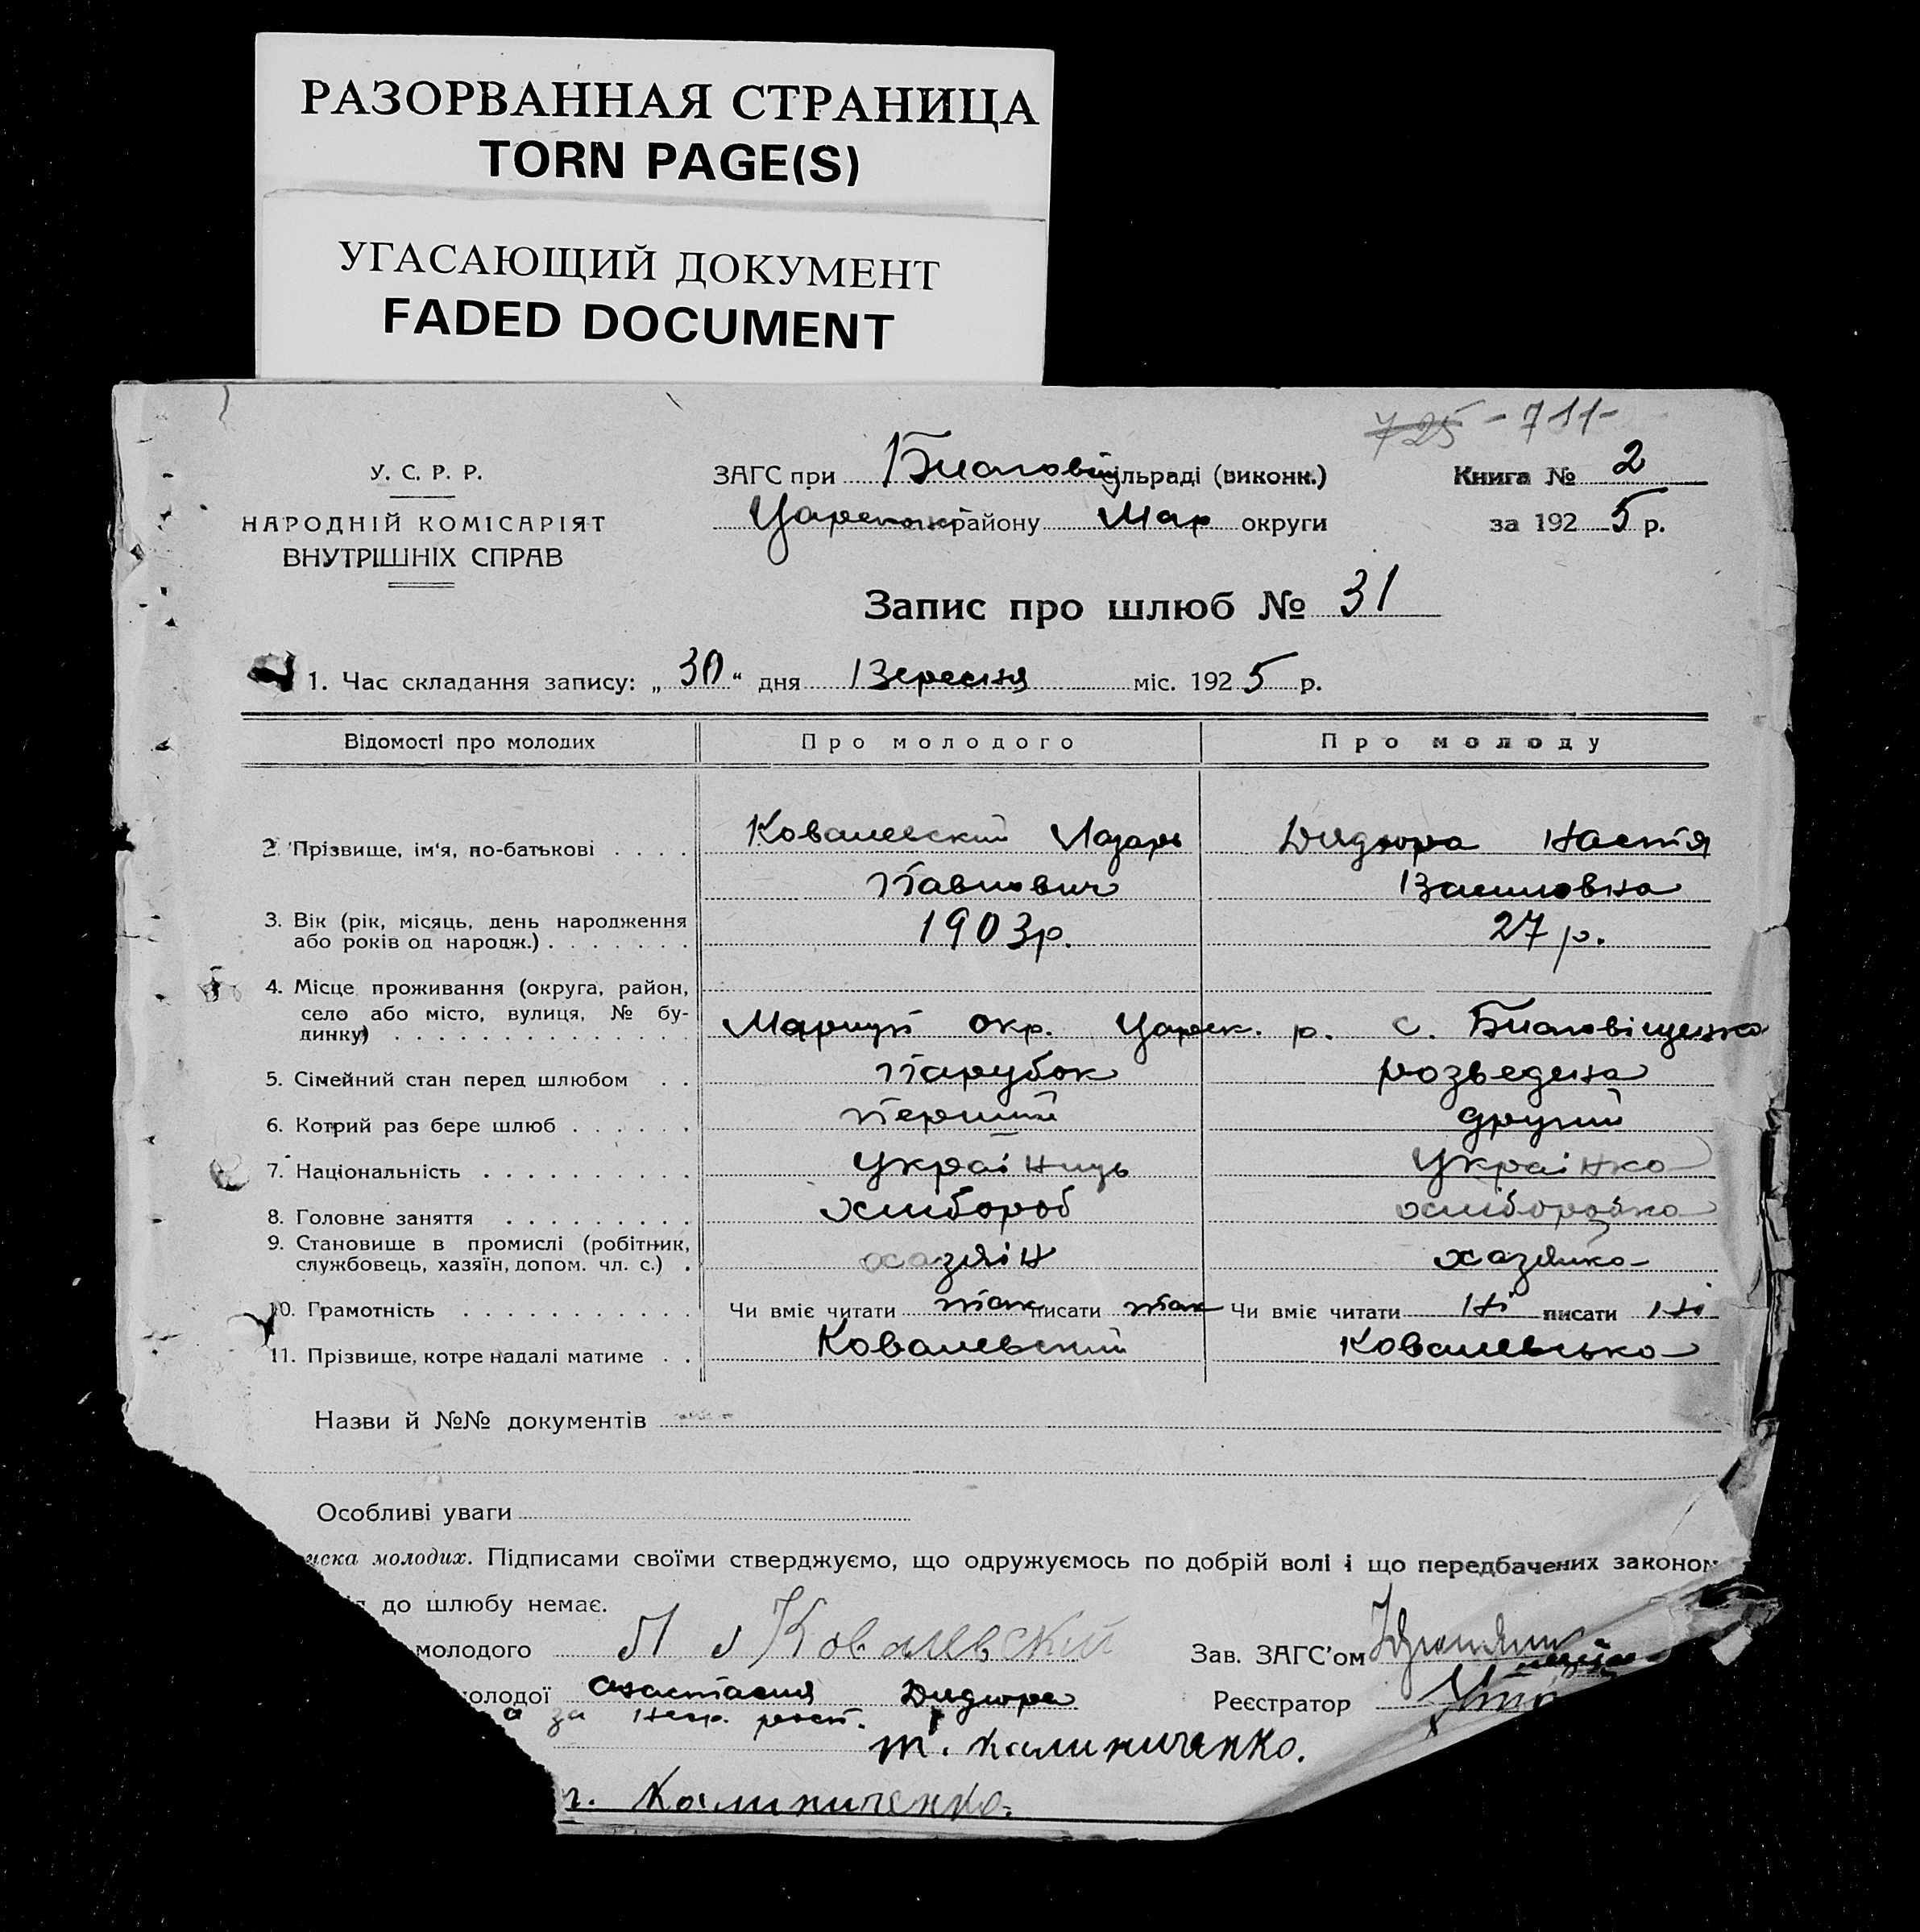 РАЗОРВАННАЯ СТРАНИЦА
TORN PAGE(S)
УГАСАЮЩИЙ ДОКУМЕНТ
FADED DOCUMENT
725 - 711-
У. С. Р. Р.
НАРОДНІЙ КОМІСАРІЯТ
ВНУТРІШНІХ СПРАВ
ЗАГС при сільраді (виконк.)
району Мар округи
Книга № 2
за 1925 р.
Запис про шлюб № 31
1. Час складання запису: „30“ дня Вересня міс. 1925 р.
Відомості про молодих Про молодого Про молоду
2. Прізвище, ім'я, по-батькові . . . . Ковалевский Лазарь Дидюра Настя
Павлович Василовна
3. Вік (рік, місяць, день народження
або років од народж.) . . . . . . . 1903р. 27 р.
4. Місце проживання (округа, район,
село або місто, вулиця, № бу-
динку) . . . . . . . . . . . . . . Маріуп окр. Царек. р. с. Благовіщенка
5. Сімейний стан перед шлюбом . . Парубок розведена
6. Котрий раз бере шлюб . . . . . . Перший другий
7. Національність . . . . . . . . . . Украінць Украінка
8. Головне заняття . . . . . . . . . хлибороб хлиборобка
9. Становище в промислі (робітник,
службовець, хазяїн, допом. чл. с.) . хазяін хазяйка
10. Грамотність . . . . . . . . . . . Чи вміє читати так писати так Чи вміє читати ні писати ні
11. Прізвище, котре надалі матиме . . Ковалевский Ковалевська
Назви й №№ документів
Особливі уваги
иска молодих. Підписами своїми стверджуємо, що одружуємось по добрій волі і що передбачених законом
до шлюбу немає.
молодого Ковалевский Зав. ЗАГС'ом
молодої Анастасия Дидюра Реєстратор
а за негр. росп.
т. Калиниченко.
г. Калиниченко.